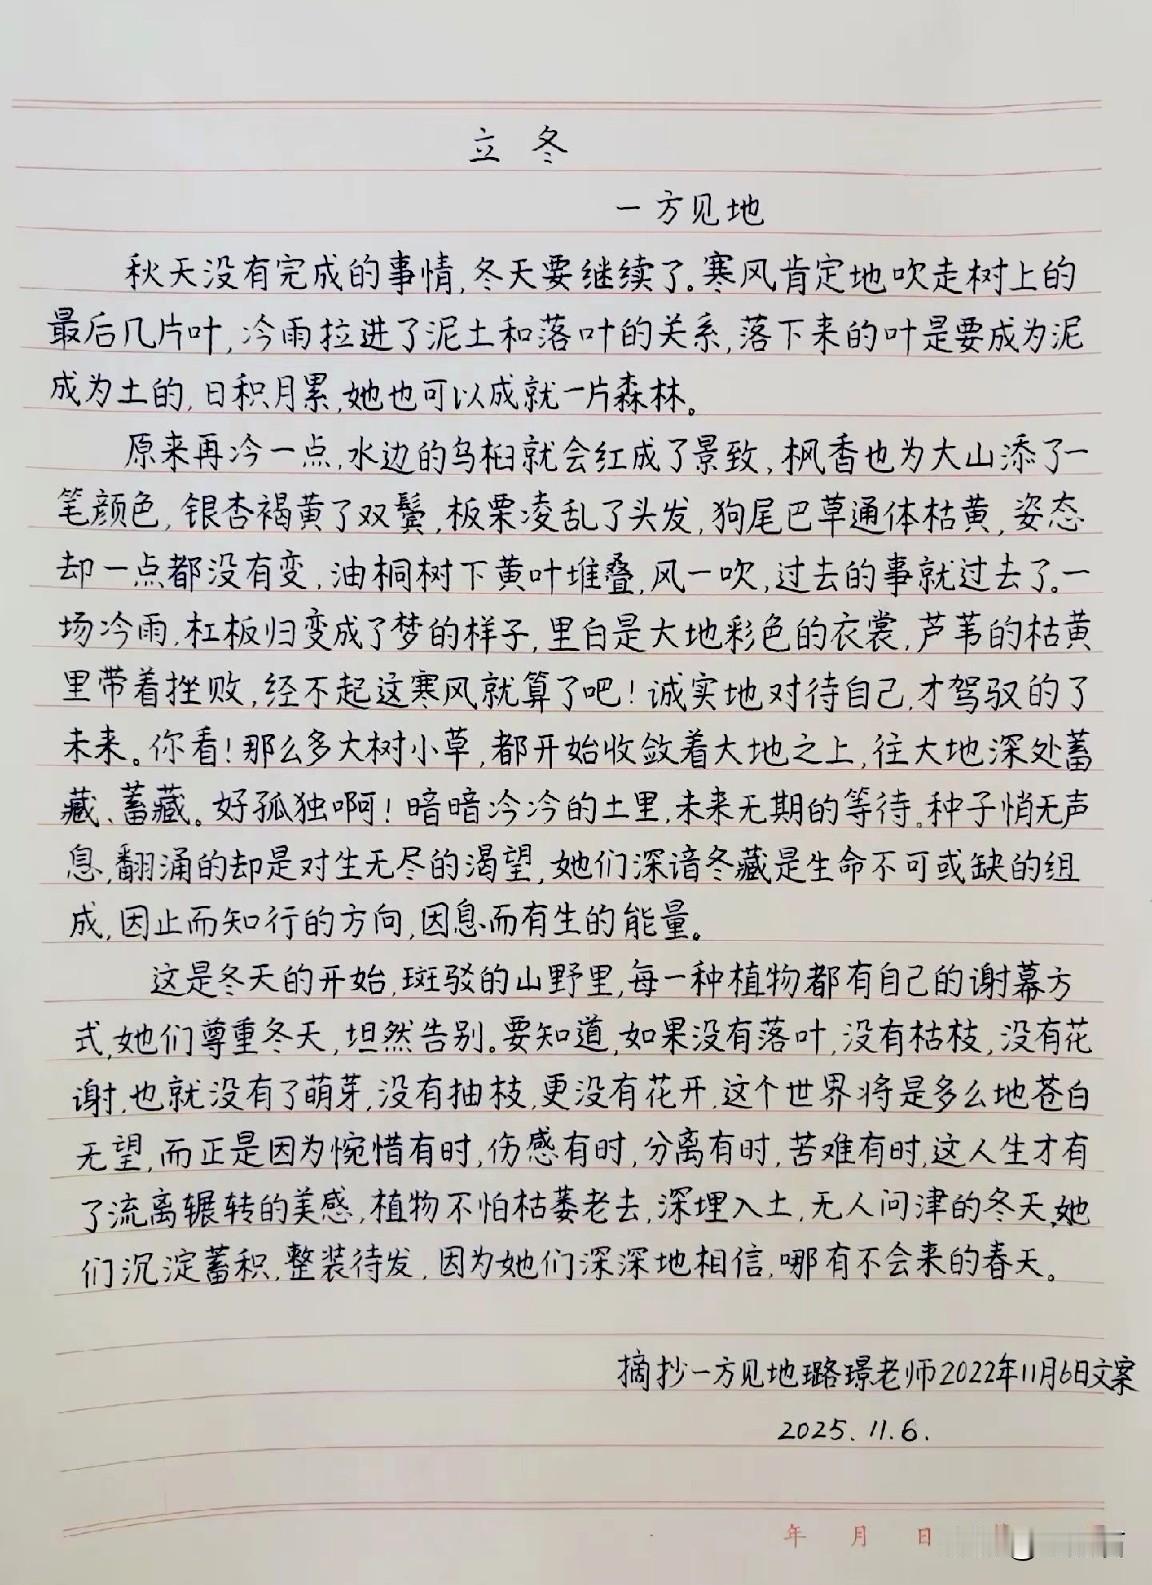 立冬
一方见地
秋天没有完成的事情,冬天要继续了。寒风肯定地吹走树上的
最后几片叶,冷雨拉进了泥土和落叶的关系,落下来的叶是要成为泥
成为土的,日积月累,她也可以成就一片森林。
原来再冷一点,水边的乌桕就会红成了景致,枫香也为大山添了一
笔颜色,银杏褐黄了双鬓,板栗凌乱了头发,狗尾巴草通体枯黄,姿态
却一点都没有变,油桐树下黄叶堆叠,风一吹,过去的事就过去了。一
场冷雨,杠板归变成了梦的样子,里白是大地彩色的衣裳,芦苇的枯黄
里带着挫败,经不起这寒风就算了吧!诚实地对待自己,才驾驭的了
未来。你看!那么多大树小草,都开始收敛着大地之上,往大地深处蓄
藏、蓄藏。好孤独啊!暗暗冷冷的土里,未来无期的等待。种子悄无声
息,翻涌的却是对生无尽的渴望,她们深谙冬藏是生命不可或缺的组
成,因止而知行的方向,因息而有生的能量。
这是冬天的开始,斑驳的山野里,每一种植物都有自己的谢幕方
式,她们尊重冬天,坦然告别。要知道,如果没有落叶,没有枯枝,没有花
谢,也就没有了萌芽,没有抽枝,更没有花开,这个世界将是多么地苍白
无望,而正是因为惋惜有时,伤感有时,分离有时,苦难有时,这人生才有
了流离辗转的美感,植物不怕枯萎老去,深埋入土,无人问津的冬天,她
们沉淀蓄积,整装待发,因为她们深深地相信,哪有不会来的春天。
摘抄一方见地璐璟老师2022年11月6日文案
2025.11.6.
年 月 日